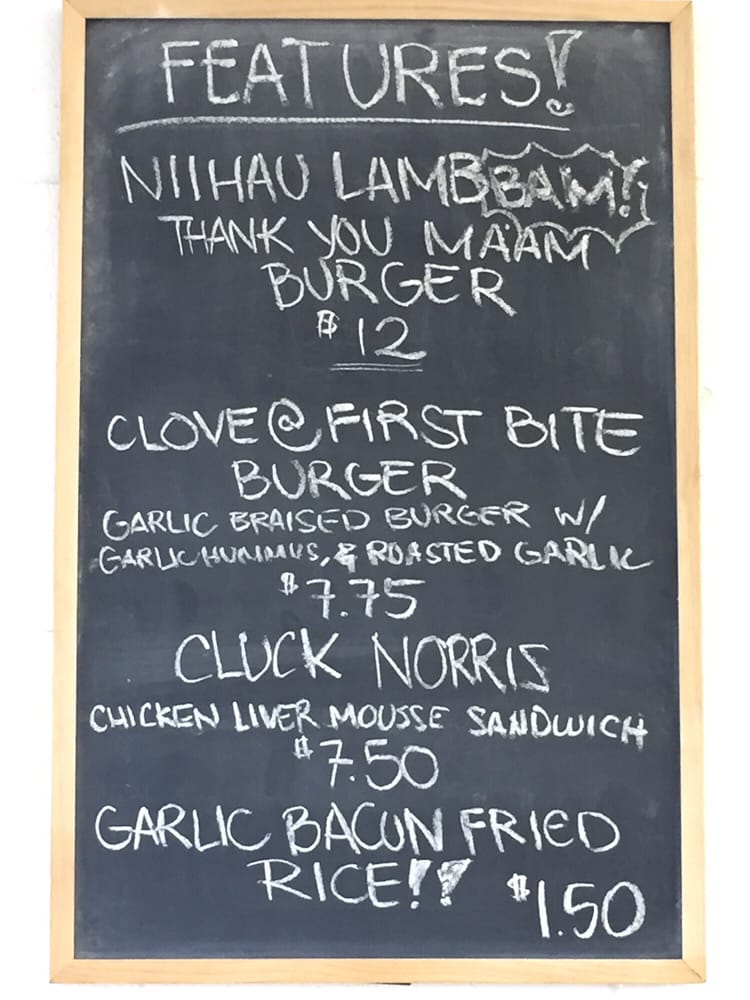 FEATURES!
NIIHAU LAMB BAM!
THANK YOU MA'AM
BURGER
$12
CLOVE @ FIRST BITE
BURGER
GARLIC BRAISED BURGER W/
GARLIC HUMMUS, & ROASTED GARLIC
$7.75
CLUCK NORRIS
CHICKEN LIVER MOUSSE SANDWICH
$7.50
GARLIC BACON FRIED
RICE!! $1.50